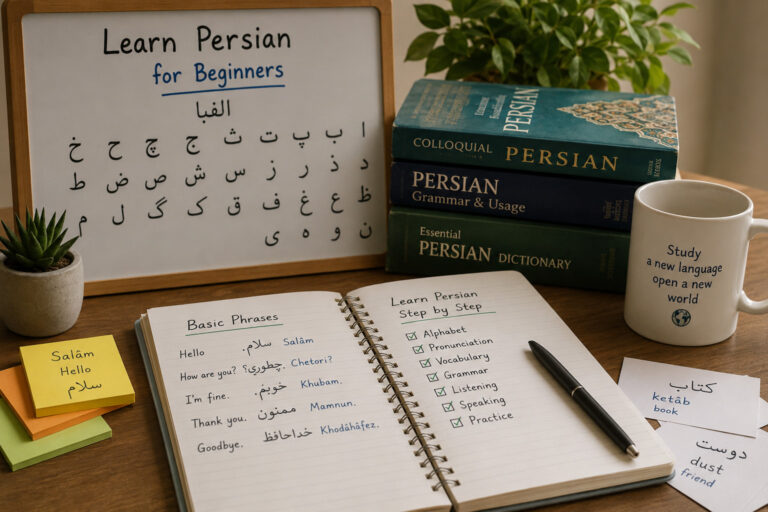 Learn Persian
for Beginners
الفبا
ا ب پ ت ث ج چ ح خ
د ذ ر ز س ش ص ض ط
ظ ع غ ف ق ک گ ل م
ن و ه ی
PERSIAN
COLLOQUIAL PERSIAN
PERSIAN
Grammar & Usage
Essential
PERSIAN DICTIONARY
Study
a new language
open a new
world
Salâm
Hello
سلام
Basic Phrases
Hello سلام. Salâm
How are you? چطوری؟. Chetori?
I'm fine. خوبم. Khubam.
Thank you. ممنون Mamnun.
Goodbye. خداحافظ Khodâhâfez.
Learn Persian
Step by Step
Alphabet
Pronunciation
Vocabulary
Grammar
Listening
Speaking
Practice
کتاب
ketâb
book
دوست
dust
friend